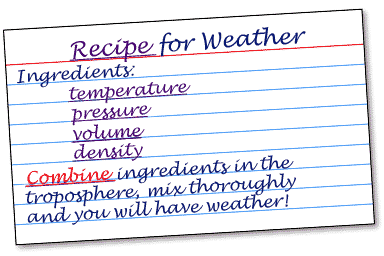 Recipe for Weather
Ingredients:
temperature
pressure
volume
density
Combine ingredients in the
troposphere, mix thoroughly
and you will have weather!